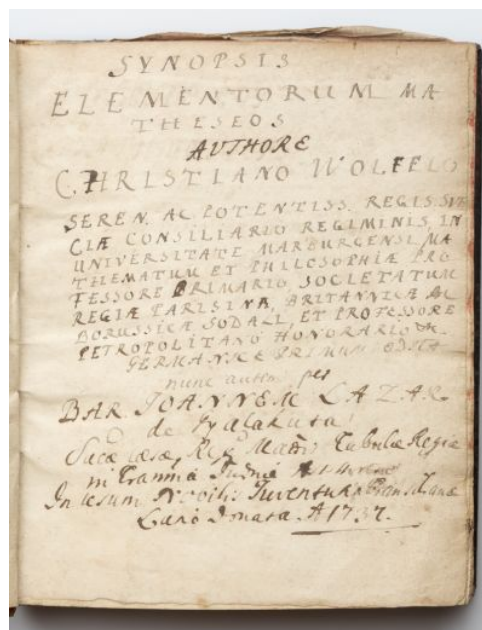 SYNOPSIS
ELEMENTORUM MA
THESEOS
AUTHORE
CHRISTIANO WOLFFIO
SEREN. AC POTENTISS. REGIS SVE
CIÆ CONSILIARIO REGIMINIS, IN
UNIVERSITATE MARBURGENSI, MA
THEMATUM ET PHILOSOPHIÆ PRO
FESSORE PRIMARIO, SOCIETATUM
REGIÆ PARISINA, BRITANNICÆ AC
BORUSSICÆ SODALI, ET PROFESSORE
PETROPOLITANO HONORARIO
GERMANICE PRIMUM EDITA
nunc per
BAR JOANNEM LAZAR
de Gyalakuta
Sacæ Tabulæ Regiæ
in
In usum Juventutis
donata. A 1737.